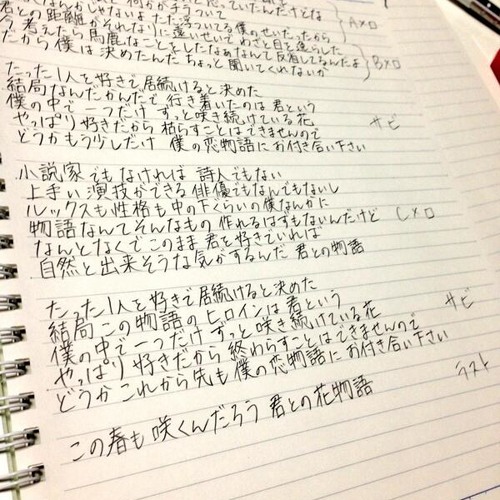 君との距離がそんなに遠いせいで わざと目を逸らした
今考えたら馬鹿なことをしたなぁなんて反省してるんだよ
だから僕は決めたんだ ちょっと聞いてくれないか
B×ロ
A×ロ
たった1人を好きで居続けると決めた
結局なんだかんだで行き着いたのは君という
僕の中で一つだけ ずっと咲き続けている花
やっぱり好きだから 枯らすことはできませんので
サビ
どうかもう少しだけ 僕の恋物語にお付き合い下さい
小説家でもなければ 詩人でもない
上手い演技ができる俳優でもなんでもないし
ルックスも性格も中の下くらいの僕なんかに
物語なんてそんなもの 作れるはずもないんだけど
C×ロ
なんとなくでこのまま 君を好きでいれば
自然と出来そうな気がするんだ 君との物語
たった1人を好きで居続けると決めた
結局この物語のヒロインは君という
サビ
僕の中で一つだけ ずっと咲き続けている花
やっぱり好きだから 終わらすことはできませんので
どうかこれから先も 僕の恋物語にお付き合い下さい
ラスト
この春も咲くんだろう 君との花物語